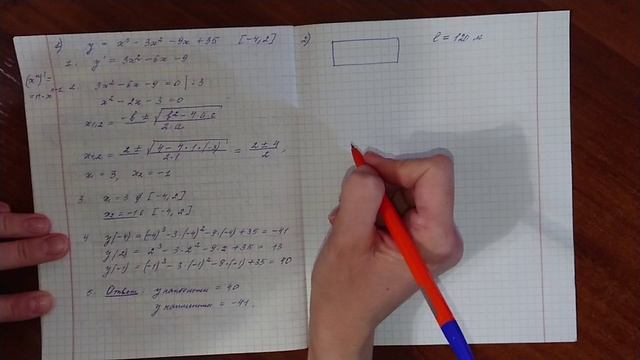 1) y = x³ - 3x² - 9x + 35 [-4,2]
1. y' = 3x² - 6x - 9
(xⁿ)' =
= n·xⁿ⁻¹
2. 3x² - 6x - 9 = 0 | :3
x² - 2x - 3 = 0
x₁,₂ = -b ± √b² - 4·a·c / 2·a
x₁,₂ = 2 ± √4 - 4·1·(-3) / 2·1 = 2 ± 4 / 2
x₁ = 3, x₂ = -1
3. x₁ = 3 ∉ [-4,2]
x₂ = -1 ∈ [-4,2]
4. y(-4) = (-4)³ - 3·(-4)² - 9·(-4) + 35 = -41
y(2) = 2³ - 3·2² - 9·2 + 35 = 13
y(-1) = (-1)³ - 3·(-1)² - 9·(-1) + 35 = 40
5. Ответ: y наибольшее = 40
y наименьшее = -41.
2)
ℓ = 120 м